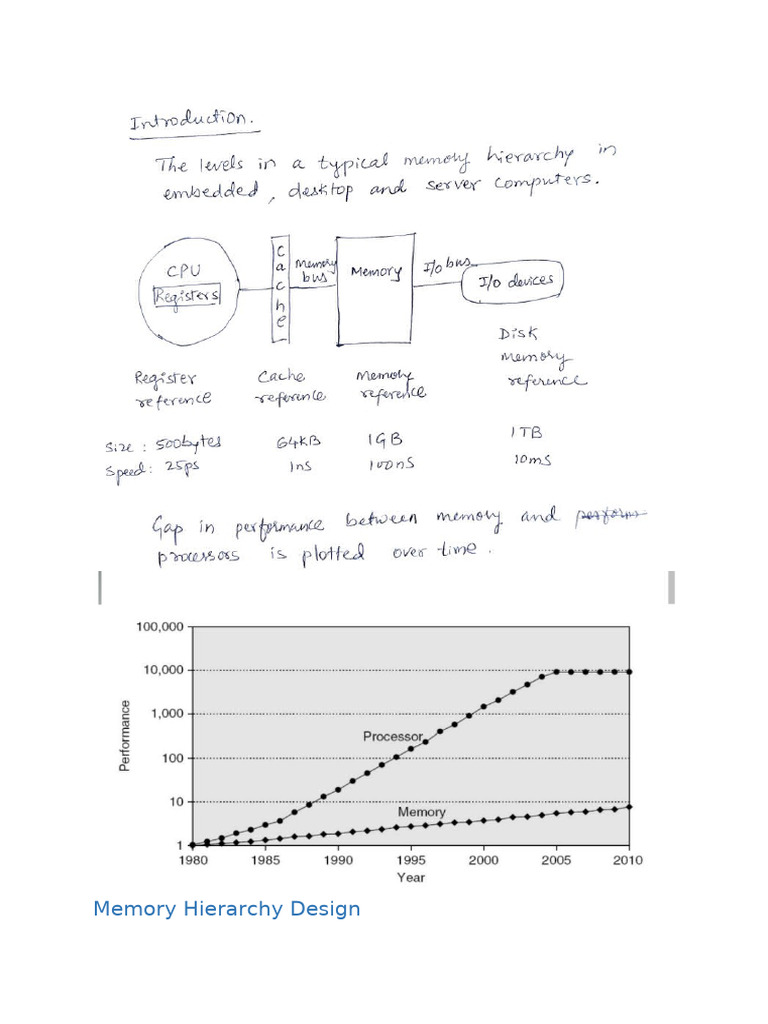 Introduction.
The levels in a typical memory hierarchy in
embedded, desktop and server computers.
CPU
Registers
Cache
Memory
bus
Memory
I/o bus
I/o devices
Register
reference
Cache
reference
Memory
reference
Disk
memory
reference
Size : 500bytes 64KB 1GB 1TB
Speed: 25ps 1ns 100ns 10ms
Gap in performance between memory and perform
processors is plotted over time.
100,000
10,000
1,000
100
10
1
Performance
Processor
Memory
1980 1985 1990 1995 2000 2005 2010
Year
Memory Hierarchy Design